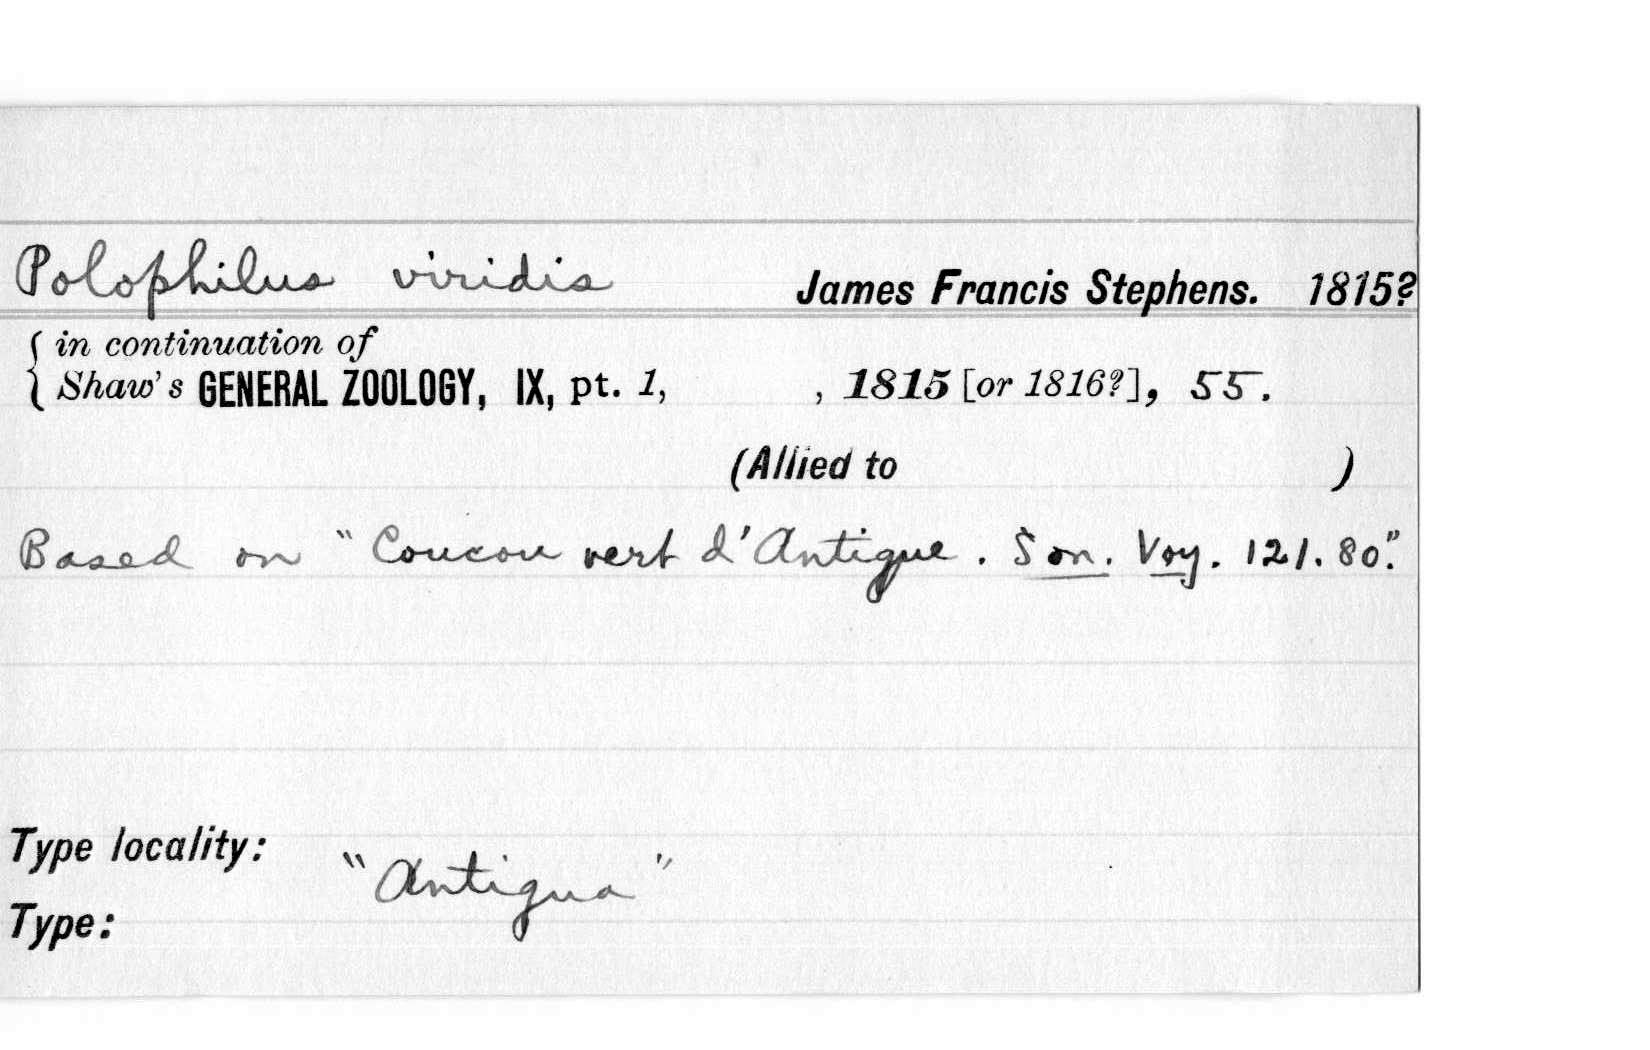 Polophilus viridis James Francis Stephens. 1815?
in continuation of
Shaw's GENERAL ZOOLOGY, IX, pt. 1, , 1815 [or 1816?], 55.
(Allied to )
Based on "Coucou vert d'Antigue. Son. Voy. 121. 80."
Type locality: "Antigua"
Type: